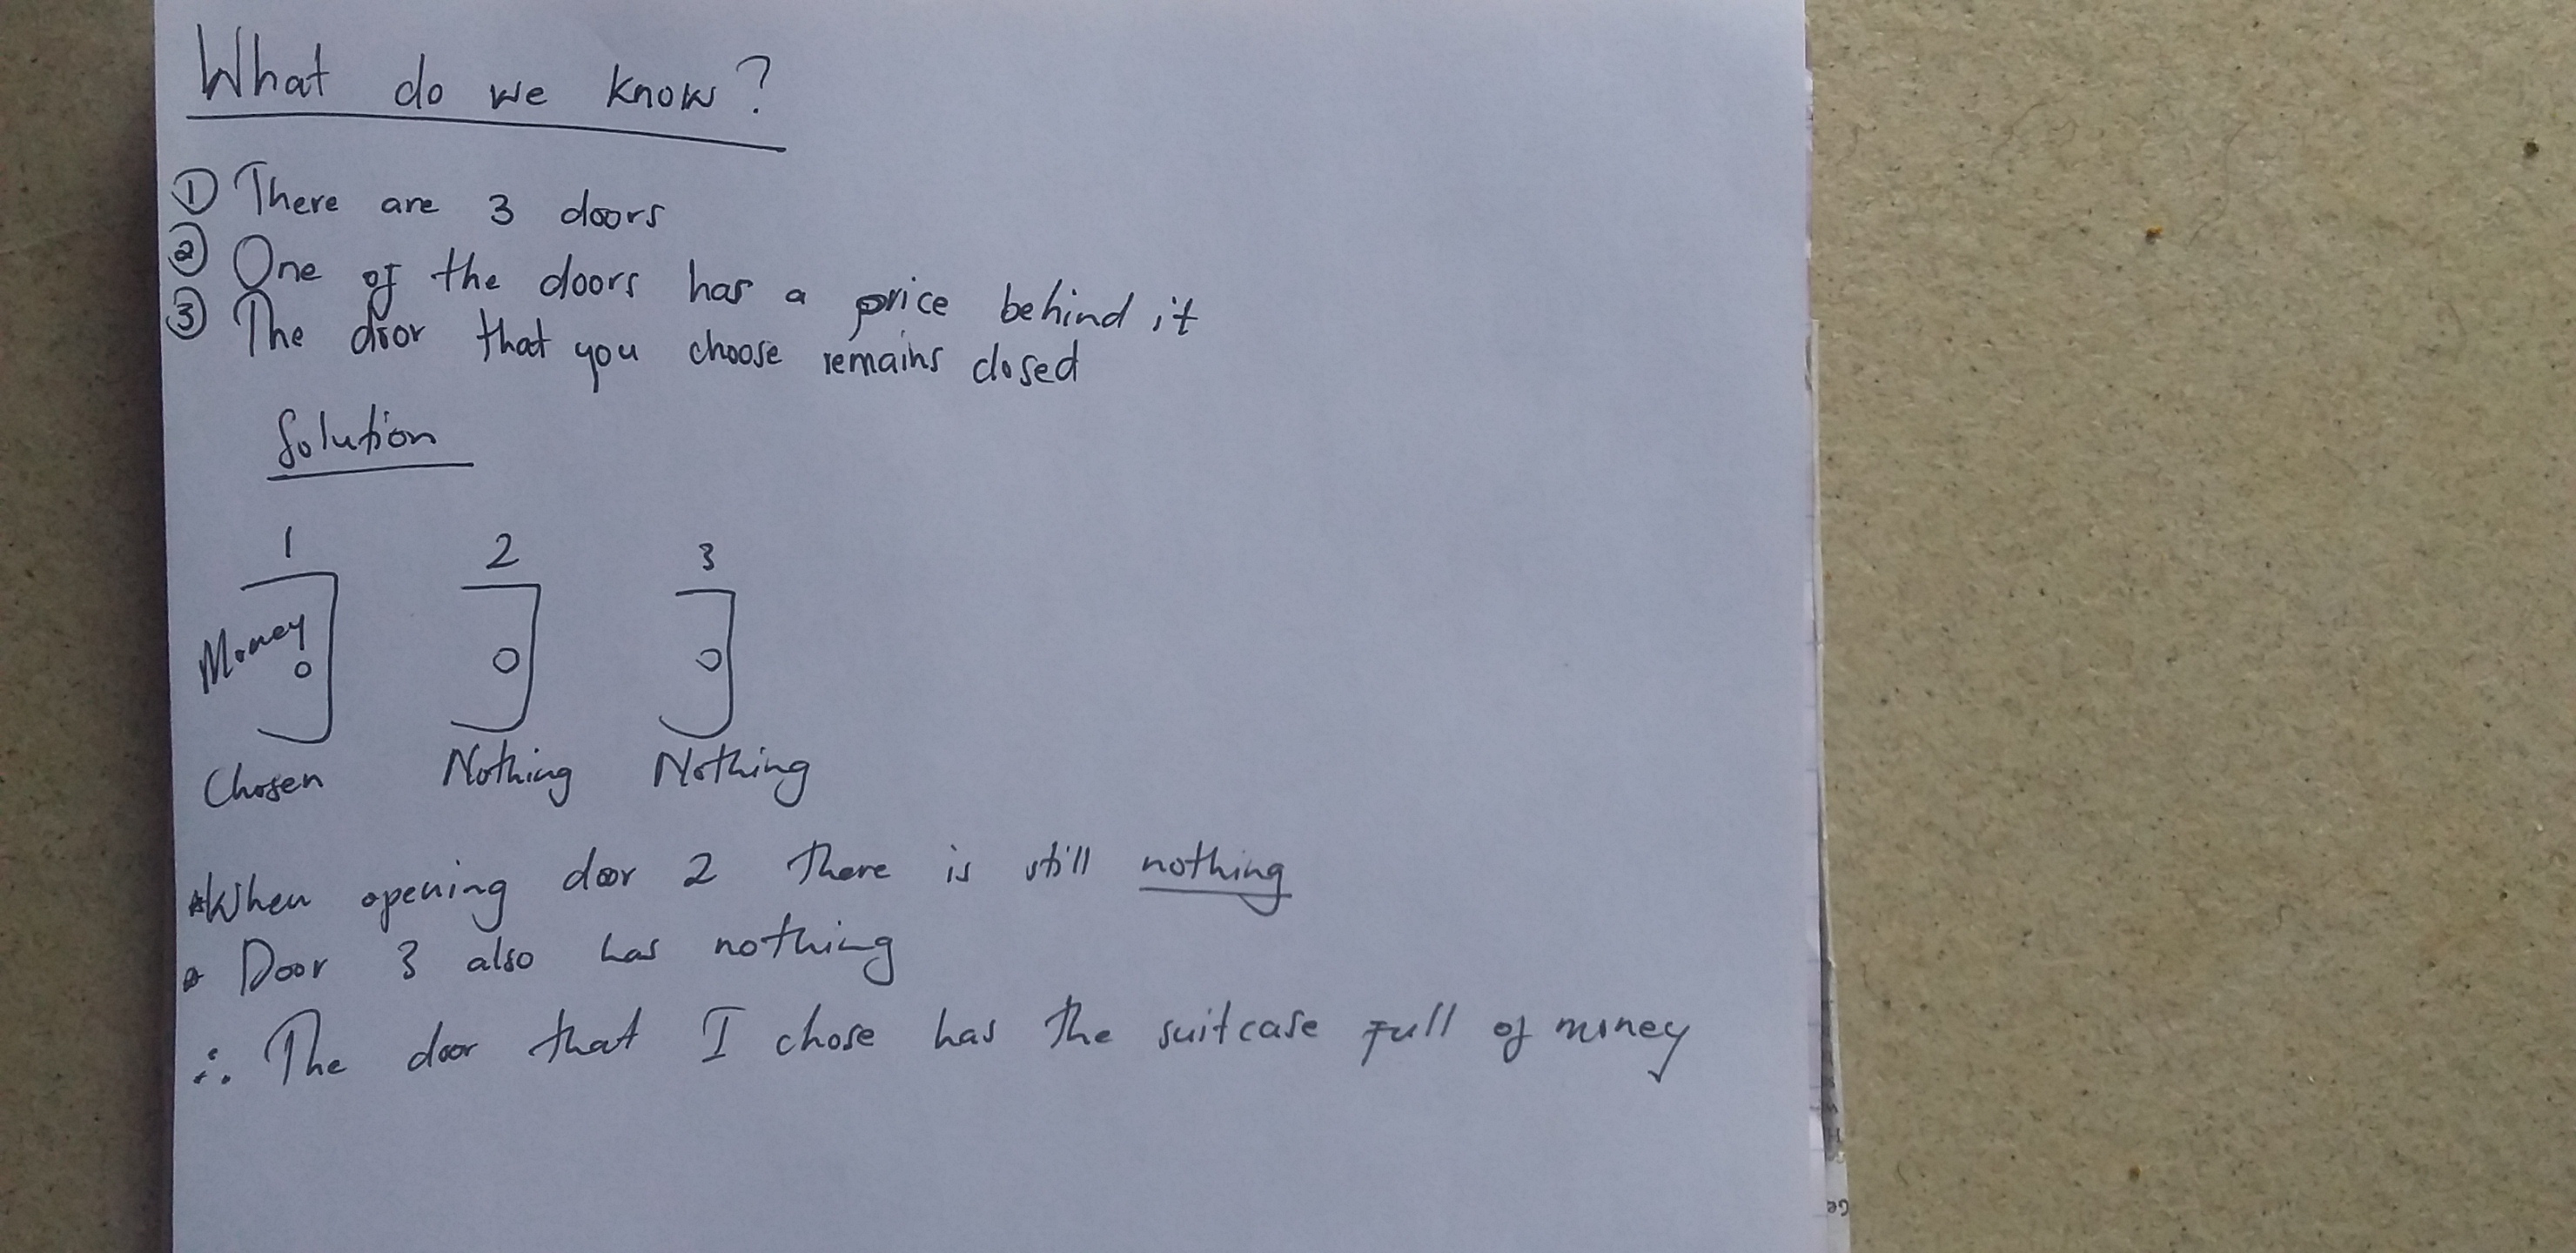 What do we know?
① There are 3 doors
② One of the doors has a price behind it
③ The door that you choose remains closed
Solution
1 2 3
Money
Chosen Nothing Nothing
When opening door 2 there is still nothing
Door 3 also has nothing
∴ The door that I chose has the suitcase full of money
Ge